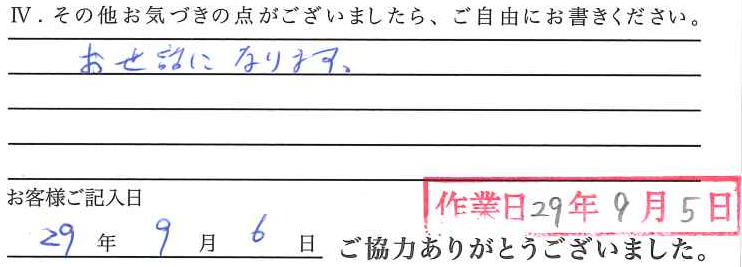 Ⅳ．その他お気づきの点がございましたら、ご自由にお書きください。
お世話になります。
お客様ご記入日
作業日29年9月5日
29年9月6日
ご協力ありがとうございました。